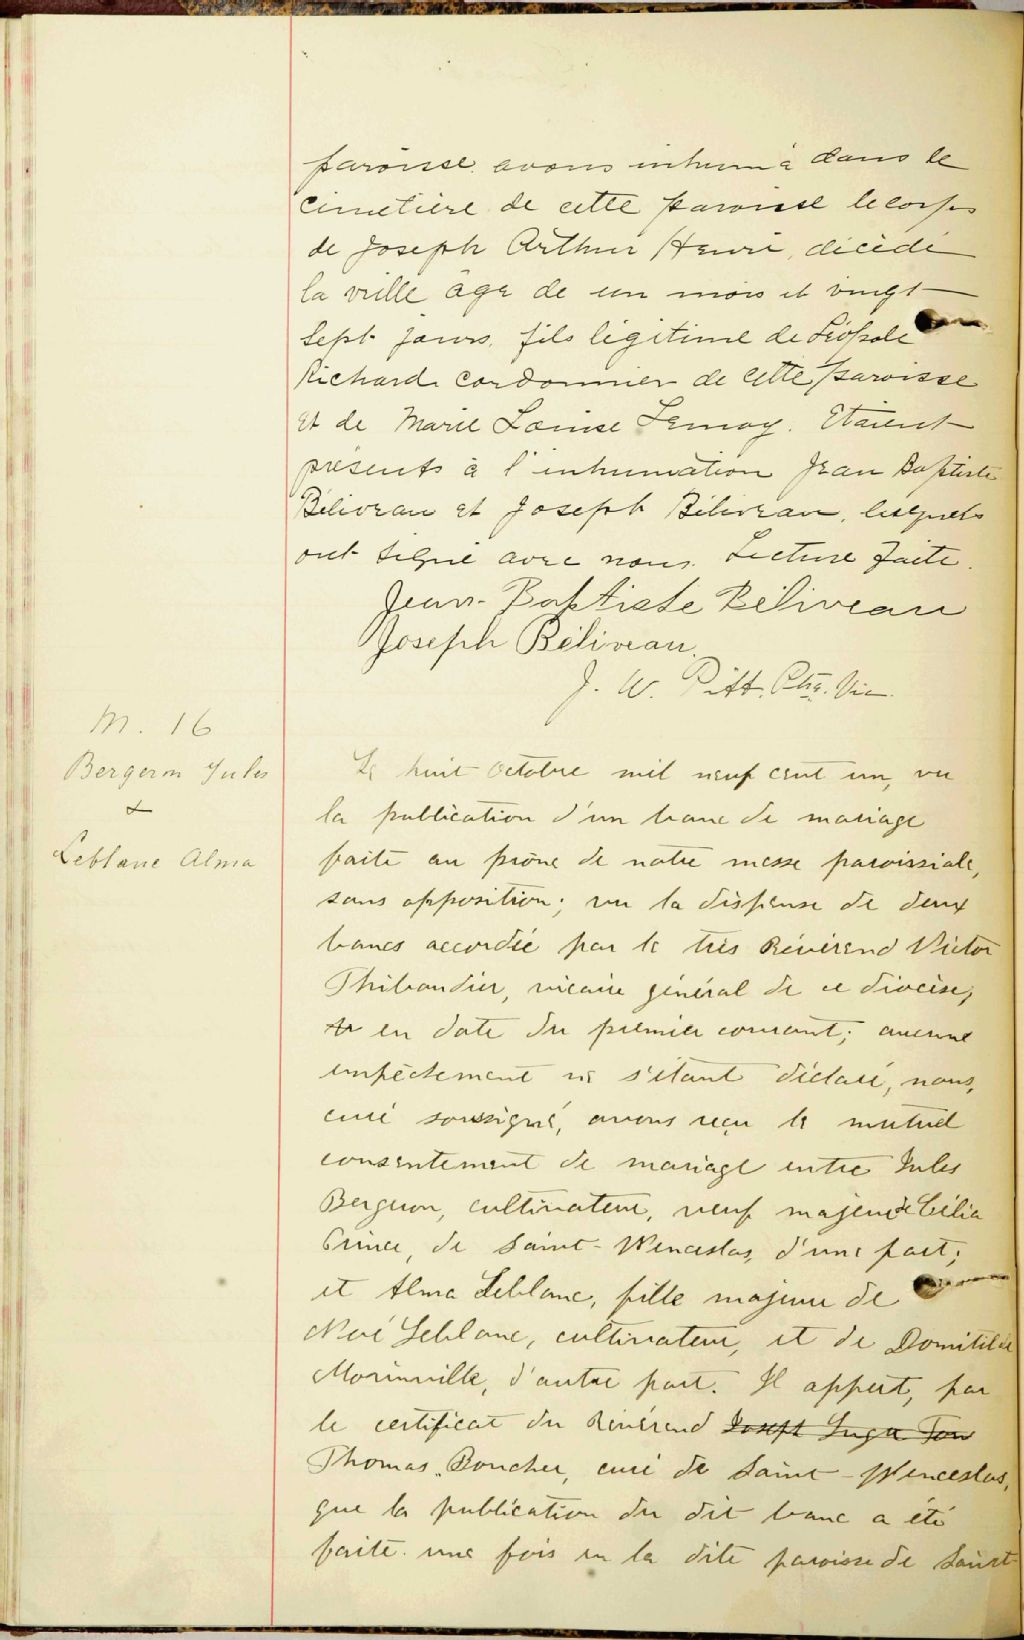 paroisse avons inhumé dans le
cimetière de cette paroisse le corps
de Joseph Arthur Henri, décédé
la veille âgé de un mois et vingt
sept jours, fils légitime de Léopole
Richard cordonnier de cette paroisse
et de Marie Louise Lemay. Etaient
présents à l'inhumation Jean Baptiste
Béliveau et Joseph Béliveau, lesquels
ont signé avec nous. Lecture faite.
Jean-Baptiste Béliveau
Joseph Béliveau.
J. W. Pitt. Ptre. Vic.
M. 16
Bergeron Jules
&
Leblanc Alma
Le huit octobre mil neuf cent un, vu
la publication d'un banc de mariage
faite au prône de notre messe paroissiale,
sans opposition; vu la dispense de deux
bancs accordée par le très Révérend Victor
Thibaudier, vicaire général de ce diocèse,
en date du premier courant; aucune
empêchement ne s'étant déclaré, nous,
curé soussigné, avons reçu le mutuel
consentement de mariage entre Jules
Bergeron, cultivateur, veuf majeur de Célia
Prince, de Saint-Wenceslas, d'une part;
et Alma Leblanc, fille majeure de
Noé Leblanc, cultivateur, et de Domitilde
Morinville, d'autre part. Il appert, par
le certificat du Révérend Joseph
Thomas Boucher, curé de Saint-Wenceslas,
que la publication du dit banc a été
faite une fois en la dite paroisse de Saint-